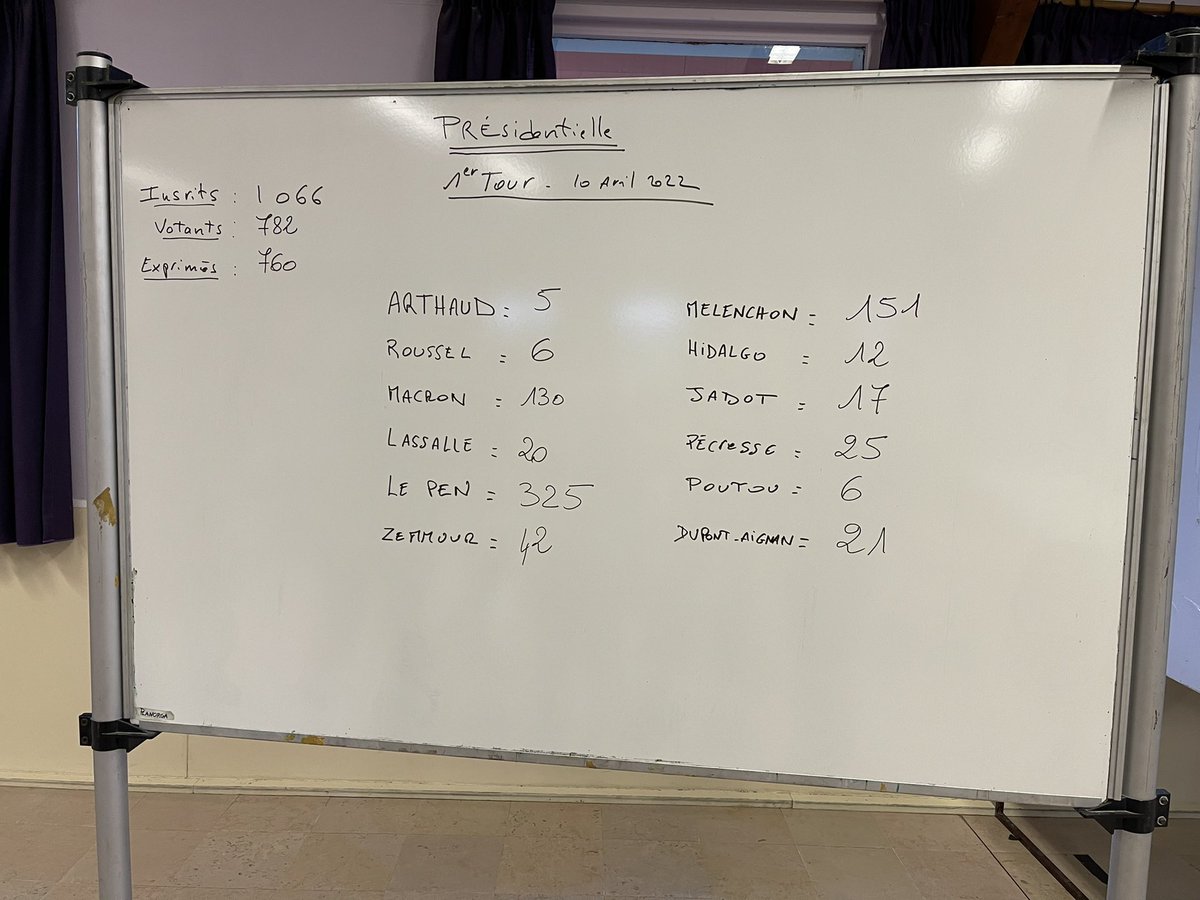 PRÉSidentielle
1er Tour - 10 Avril 2022
Insrits : 1 066
Votants : 782
Exprimés : 760
ARTHAUD = 5
ROUSSEL = 6
MACRON = 130
LASSALLE = 20
LE PEN = 325
ZEMMOUR = 42
MELENCHON = 151
HiDALGO = 12
JADOT = 17
PÉCresse = 25
POUTOU = 6
DUPONT-AiGNAN = 21
PLANORGA